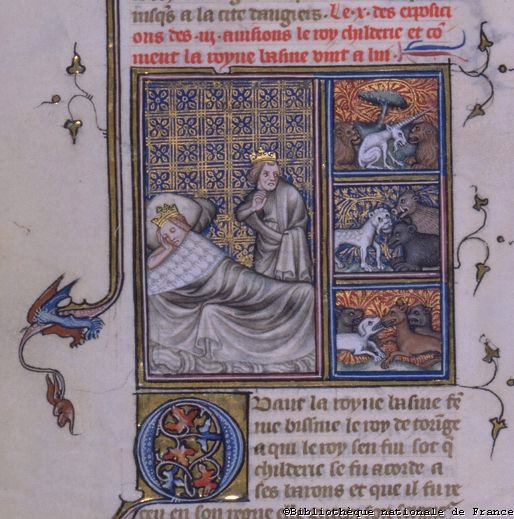 iusqs a la cite dangiers. Le .x. des exposici
ons des .iij. auisions le roy childeric et cõ
ment la royne basine vint a lui.
Quant la royne basine fẽ
me bissine le roy de torige
a qui le roy sen fui sot q̃
childeric se fu acorde a
ses barons et que il fu re
ceu en son regne
©Bibliothèque nationale de France